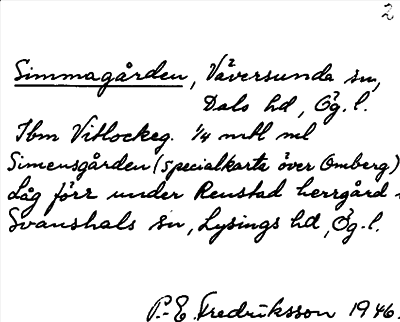 2
Simmagården, Väversunda sn,
Dals hd, Ög. l.
Ibm Vitlockeg. 1/4 mtl ml
Simensgården (specialkarta över Omberg)
Låg förr under Renstad herrgård
Svanshals sn, Lysings hd, Ög. l.
P.-E. Fredriksson 1946.